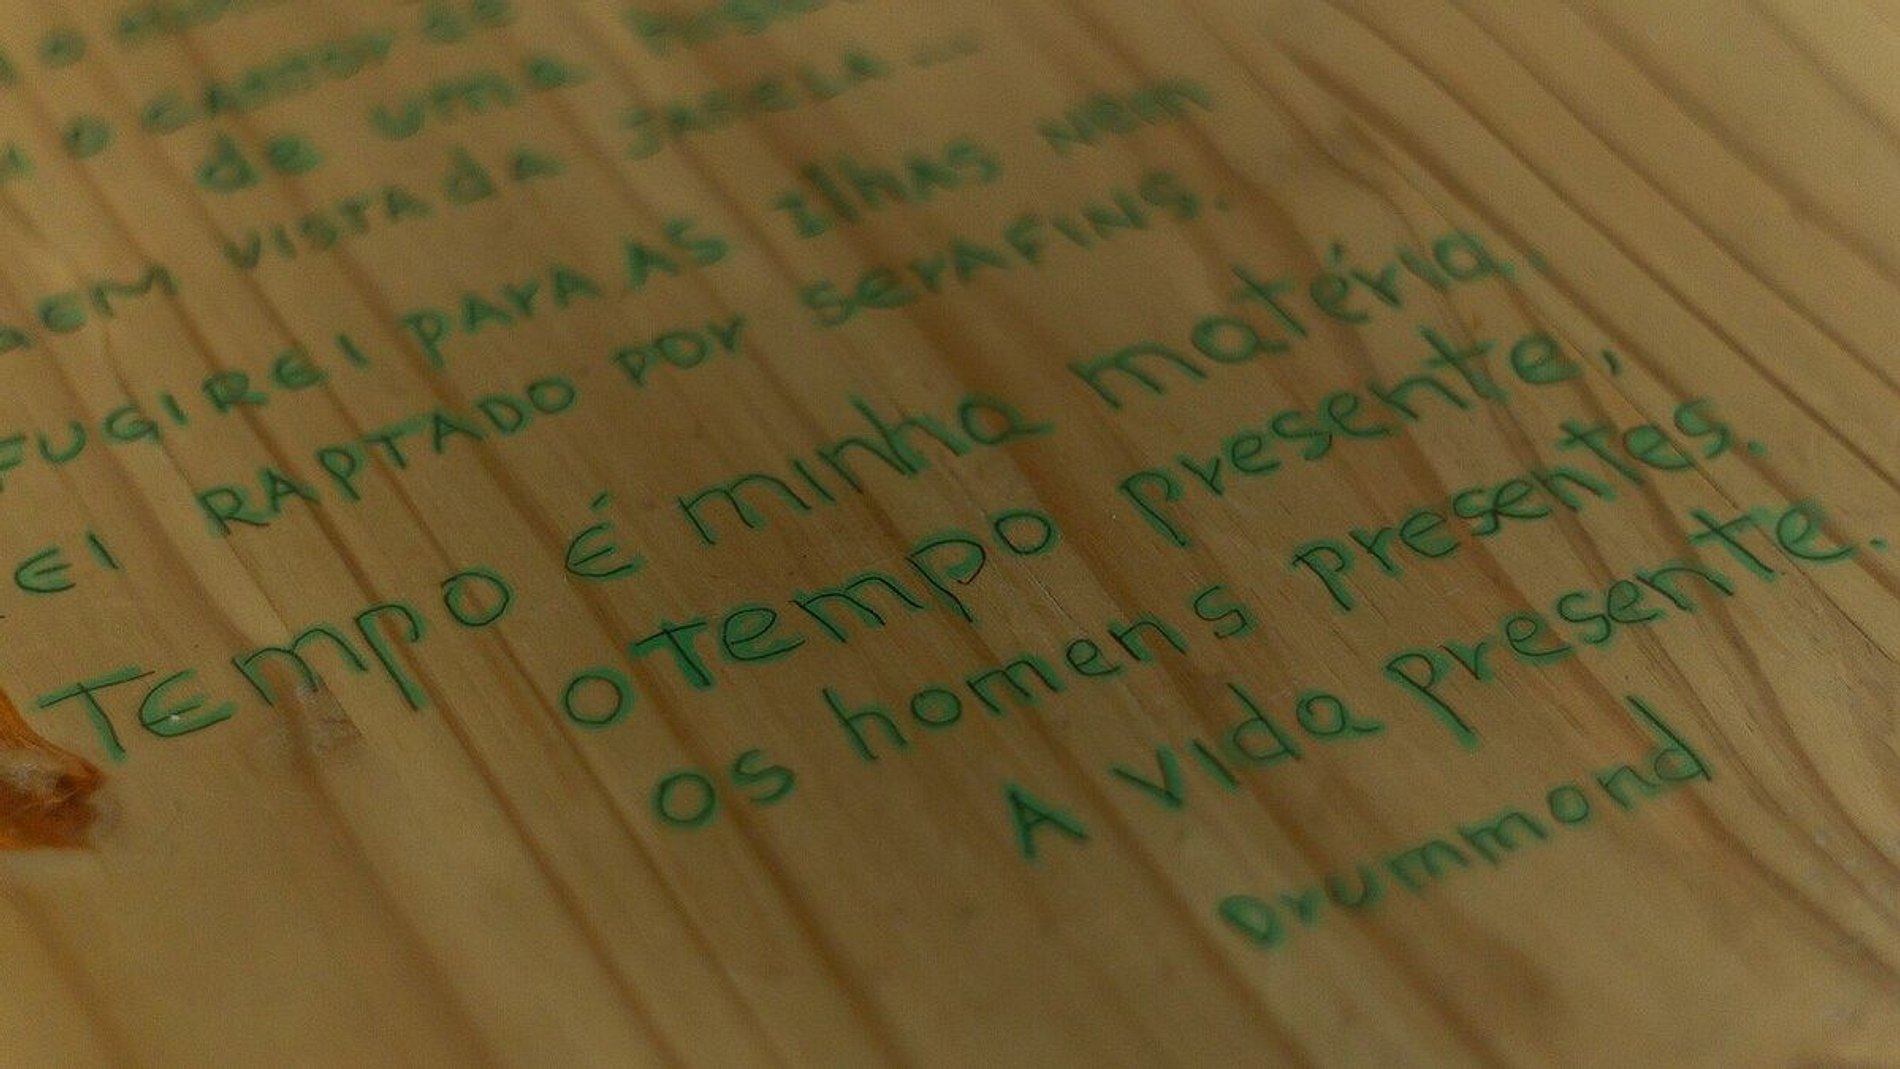 O CANTOR DE
de uma
AGEM VISTA da JANELA...
FUGIREI PARA AS Ilhas NEM
EI RAPTADO POR SERAFINS.
TEMPO É minha matéria,
O Tempo presente,
os homens presentes.
A Vida presente.
Drummond